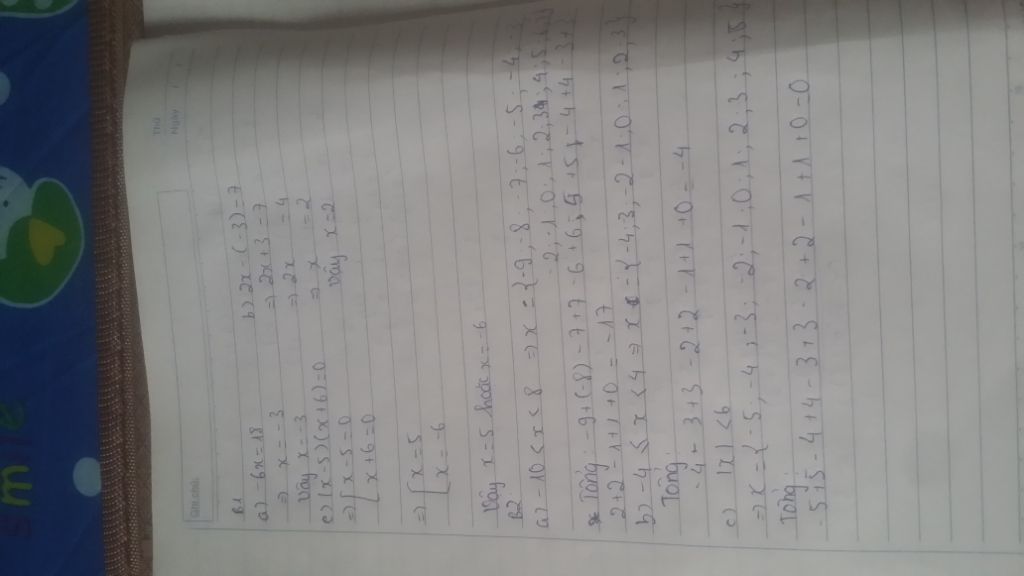 smile
Thứ
Ngày / /
B1
a) -6x = 18 b) 2x - (-3) = 7
=> x = -3 => 2x + 3 = 7
Vậy x = -3 => 2x = 4
c) (x-5)(x+6) = 0 => x = 2
=> [x-5=0 Vậy x=2
[x+6=0
=> [x=5
[x=-6
Vậy x=5 hoặc x=-6
B2
a) -10 < x < 8 => x = {-9; -8; -7; -6; -5; -4;
-2; -1; 0; 1; 2; 3; 4; 5;
* Tổng: -9+(-8)-7+7-6+6-5+5-4+4-3+3
2+2-1+1+0 = -17
b) -4 ≤ x < 4 => x = {-4; 3; -2 -1; 0; 1; 2; 3}
Tổng:
-4 - 3+3 -2+2 -1+1+0 = -4
c) |x| < 6
=> x = {-5; -4; -3; -2; -1; 0; 1; 2; 3; 4; 5}
Tổng:
-5+5-4+4-3+3-2+2-1+1+0=0